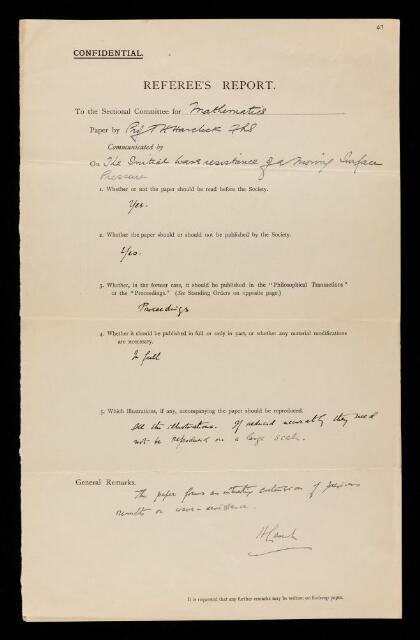 67
CONFIDENTIAL.
REFEREE'S REPORT.
To the Sectional Committee for Mathematics
Paper by Prof T H Havelock FRS
Communicated by
On The Initial wave resistance of a moving Surface
Pressure
1. Whether or not the paper should be read before the Society.
Yes.
2. Whether the paper should or should not be published by the Society.
Yes.
3. Whether, in the former case, it should be published in the "Philosophical Transactions"
or the "Proceedings." (See Standing Orders on opposite page.)
Proceedings
4. Whether it should be published in full or only in part, or whether any material modifications
are necessary.
In full
5. Which illustrations, if any, accompanying the paper should be reproduced.
All the illustrations. If reduced accurately they need
not be reproduced on a large scale.
General Remarks.
The paper forms an interesting extension of previous
results on wave-resistance.
H Lamb
It is requested that any further remarks may be written on foolscap paper.